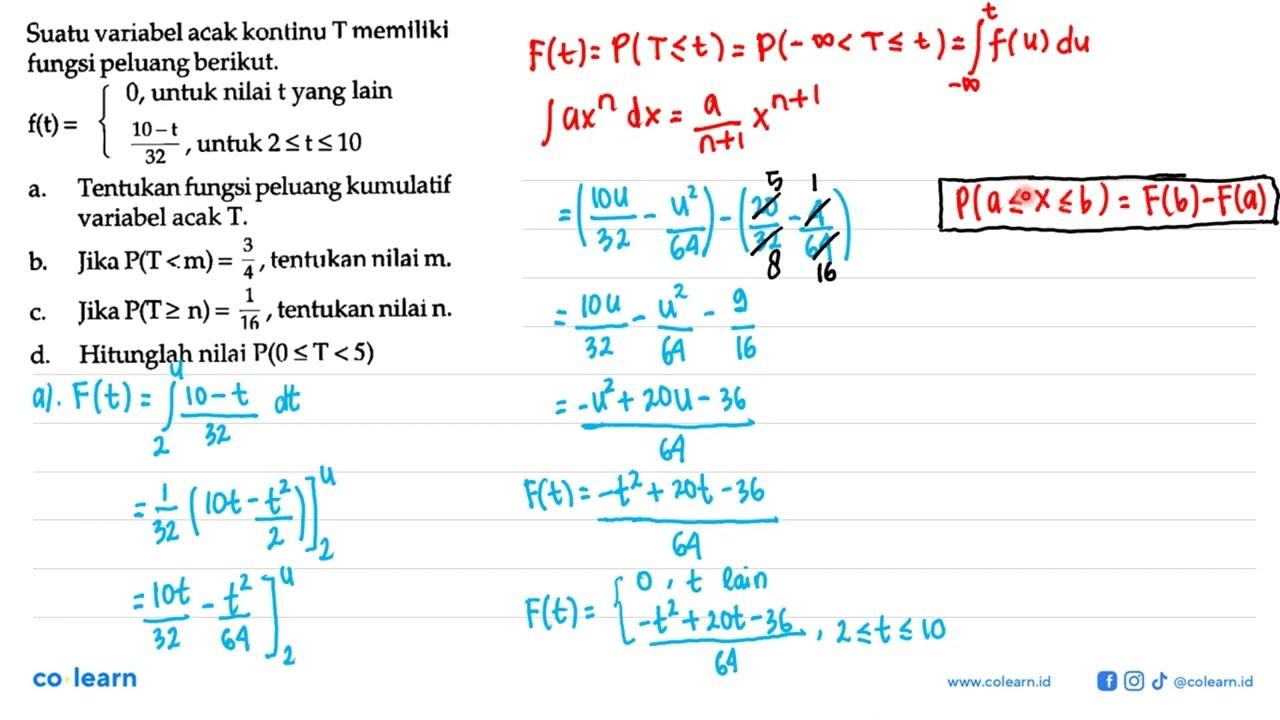 Suatu variabel acak kontinu T memiliki
fungsi peluang berikut.
f(t) = { 0, untuk nilai t yang lain
10-t/32, untuk 2 ≤ t ≤ 10
a. Tentukan fungsi peluang kumulatif
variabel acak T.
b. Jika P(T < m) = 3/4, tentukan nilai m.
c. Jika P(T ≥ n) = 1/16, tentukan nilai n.
d. Hitunglah nilai P(0 ≤ T < 5)
a). F(t) = ∫₂ᵘ 10-t/32 dt
= 1/32 (10t - t²/2)]₂ᵘ
= 10t/32 - t²/64]₂ᵘ
F(t) = P(T ≤ t) = P(-∞ < T ≤ t) = ∫_{-∞}^{t} f(u) du
∫axⁿ dx = a/n+1 xⁿ⁺¹
= (10u/32 - u²/64) - (20/32 - 4/64)
5 1
8 16
= 10u/32 - u²/64 - 9/16
= -u² + 20u - 36/64
F(t) = -t² + 20t - 36/64
F(t) = { 0, t lain
-t² + 20t - 36/64, 2 ≤ t ≤ 10
P(a ≤ x ≤ b) = F(b) - F(a)
co learn
www.colearn.id
@colearn.id